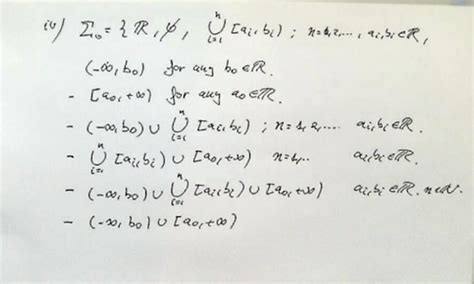 iv) Σ₀ = { ℝ, ∅, ⋃ᵢ₌₁ⁿ [aᵢ, bᵢ) ; n=1,2,..., aᵢ,bᵢ∈ℝ,
(-∞, b₀) for any b₀∈ℝ.
- [a₀, +∞) for any a₀∈ℝ.
- (-∞, b₀) ∪ ⋃ᵢ₌₁ⁿ [aᵢ, bᵢ) ; n=1,2,.... aᵢ,bᵢ∈ℝ.
- ⋃ᵢ₌₁ⁿ [aᵢ, bᵢ) ∪ [a₀, +∞) n=1,.. aᵢ,bᵢ∈ℝ.
- (-∞, b₀) ∪ ⋃ᵢ₌₁ⁿ [aᵢ, bᵢ) ∪ [a₀, +∞) aᵢ,bᵢ∈ℝ. n∈ℕ.
- (-∞, b₀) ∪ [a₀, +∞)